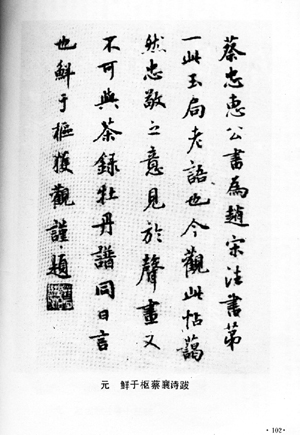 蔡忠惠公書為趙宋法書第
一此玉局老語也今觀此帖藹
然忠敬之意見於聲畫又
不可與茶錄牡丹譜同日言
也鮮于樞獲觀謹題
元 鲜于枢蔡襄诗跋
·102·